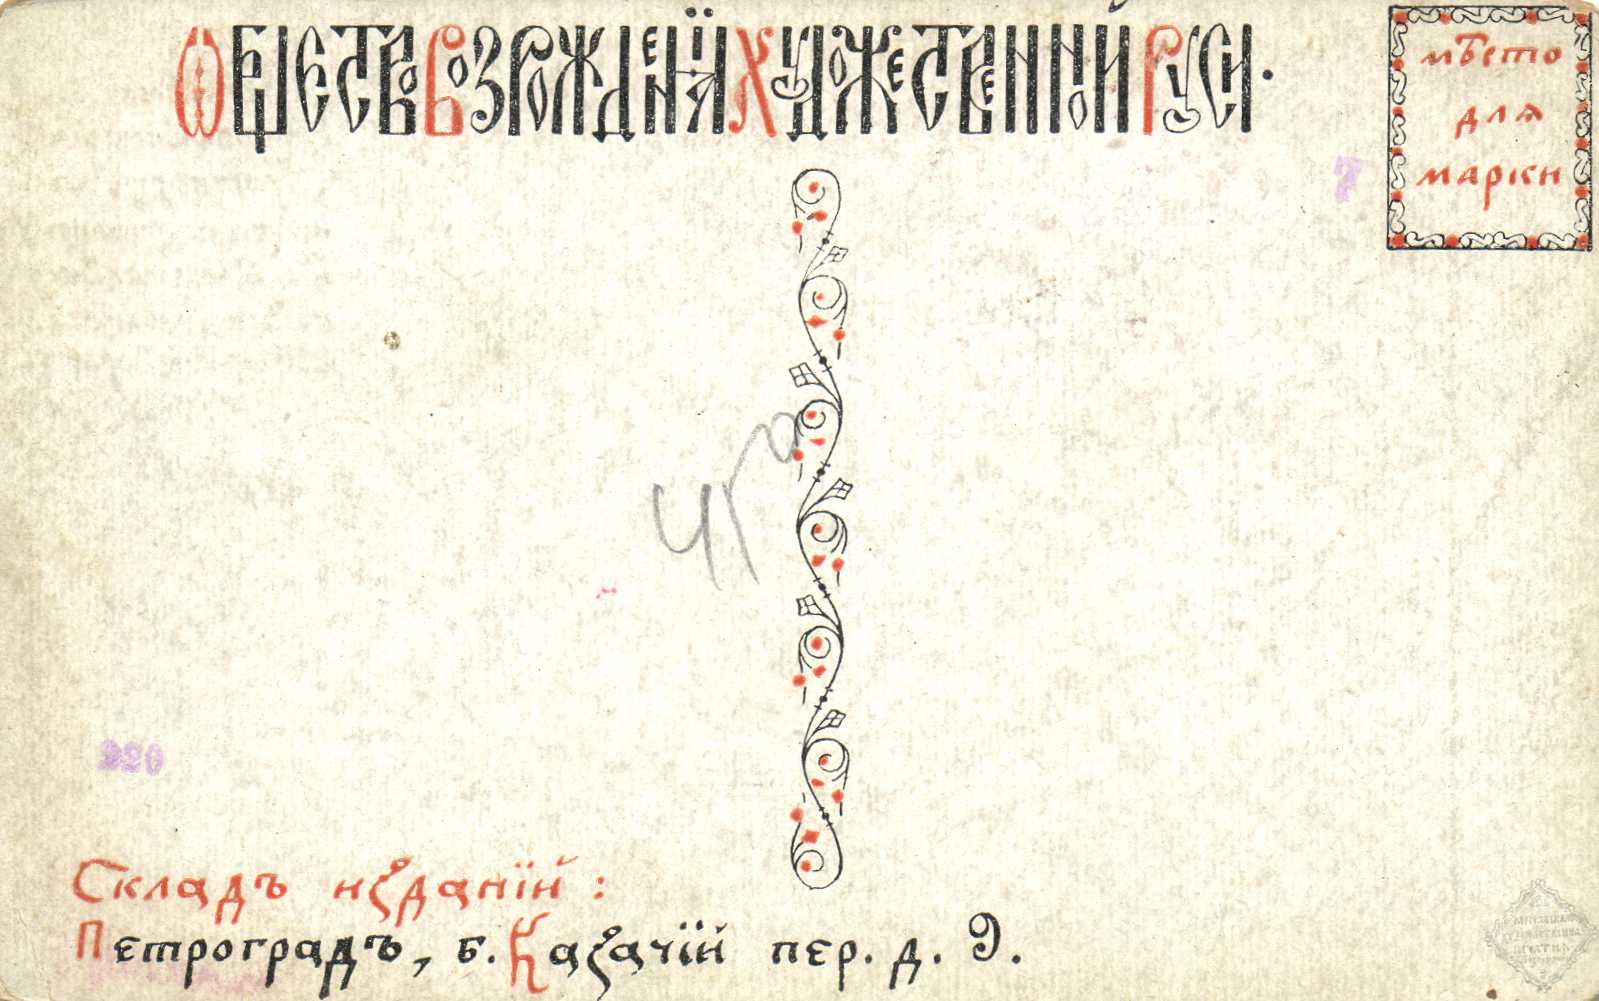 Ѡбщество Возрожденїя Художественной Руси.
мѣсто
для
марки
7
чго
220
Складъ изданїй:
Петроградъ, б. Казачїй пер. д. 9.